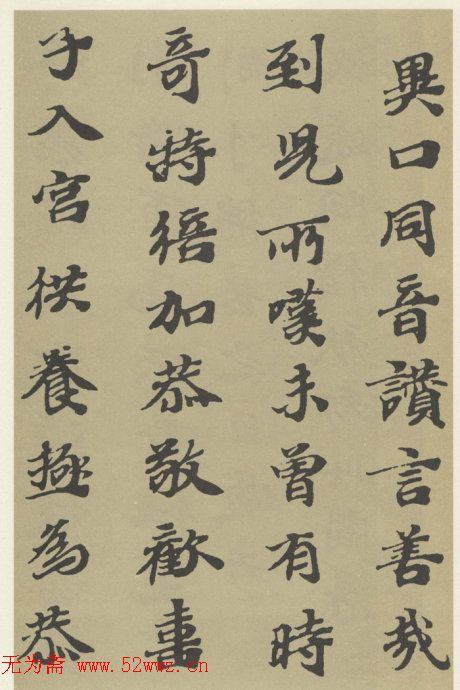 異口同音讚言善哉
到児所嘆未曾有時
奇特倍加恭敬歡喜
子入宮供養極為恭
无为斋 www.52wwz.cn